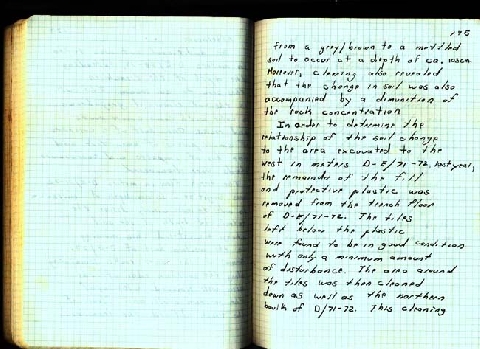 from a grey/brown to a mottled
soil to occur at a depth of ca.
Moments, cleaning also revealed
that the change in soil was also
accompanied by a diminution of
the rock concentration
In order to determine the
relationship of the soil change
to the area excavated to the
west in meters D-E/71-72, last year,
the remainder of the fill
and protective plastic was
removed from the trench floor
of D-E/71-72. The tiles
left below the plastic
were found to be in good condition
with only a minimum amount
of disturbance. The area around
the tiles was then cleaned
down as well as the northern
baulk of D/71-72. This cleaning